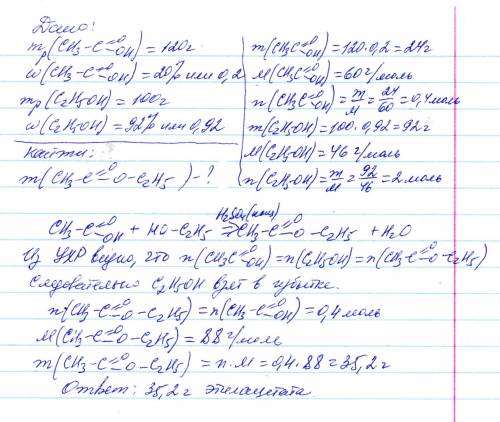 Дано:
mр(CH3-C=O OH) = 120г
ω(CH3-C=O OH) = 20% или 0,2
mр(C2H5OH) = 100г
ω(C2H5OH) = 92% или 0,92
Найти:
m(CH3-C=O-O-C2H5) - ?
m(CH3C=O OH) = 120·0,2 = 24г
M(CH3C=O OH) = 60г/моль
n(CH3C=O OH) = m/M = 24/60 = 0,4моль
m(C2H5OH) = 100·0,92 = 92г
M(C2H5OH) = 46г/моль
n(C2H5OH) = m/M = 92/46 = 2моль
CH3-C=O OH + HO-C2H5 H2SO4(конц) ⇄ CH3-C=O-O-C2H5 + H2O
Из УХР видно, что n(CH3C=O OH) = n(C2H5OH) = n(CH3-C=O-O-C2H5)
Следовательно C2H5OH взят в избытке.
n(CH3-C=O-O-C2H5) = n(CH3-C=O OH) = 0,4моль
M(CH3-C=O-O-C2H5) = 88г/моль
m(CH3-C=O-O-C2H5) = n·M = 0,4·88 = 35,2г
Ответ: 35,2г этилацетата.